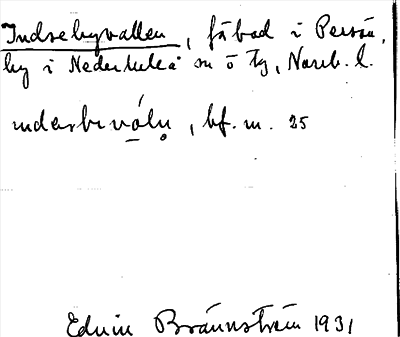 Indsebyvallen, fäbod i Persön,
by i Nederluleå sn ö tg, Norrb. l.
indersbιvåln, bf. m. 25
Edvin Brännström 1931